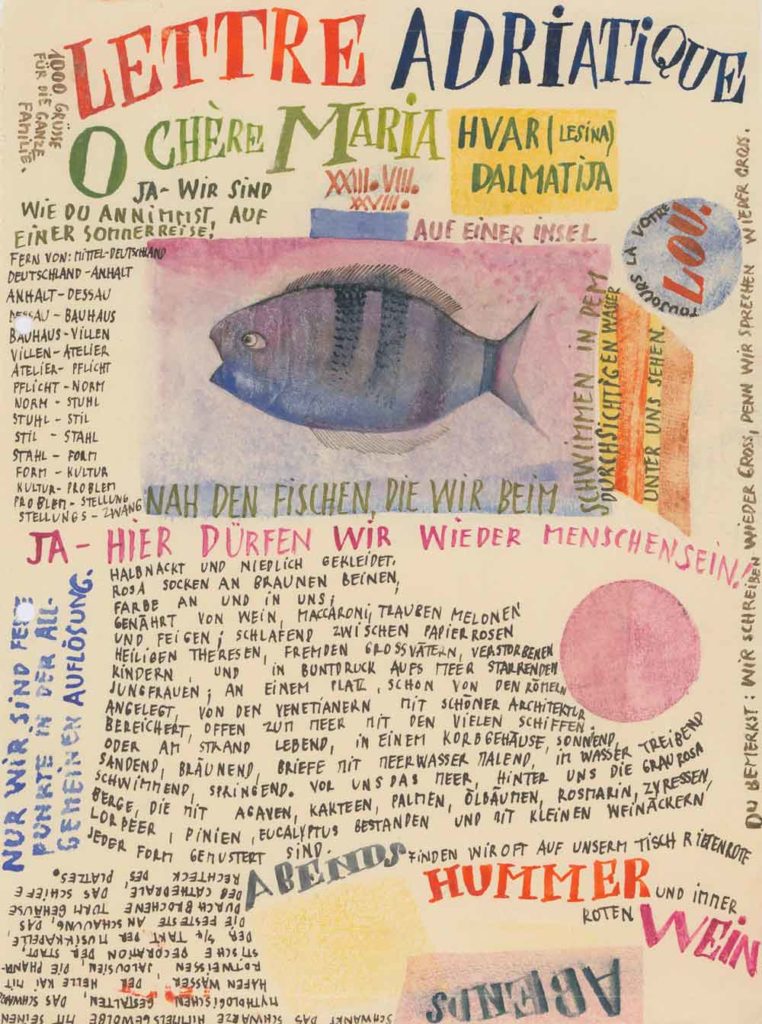 LETTRE ADRIATIQUE
1000 GRÜSSE
FÜR DIE GANZE
FAMILIE.
O CHÈRE MARIA
HVAR (LESINA)
DALMATIJA
JA - WIR SIND
WIE DU ANNIMMST, AUF
EINER SOMMERREISE!
XXIII. VIII.
XXVIII.
AUF EINER INSEL
TOUJOURS LA VOTRE
LOU!
FERN VON: MITTEL-DEUTSCHLAND
DEUTSCHLAND-ANHALT
ANHALT-DESSAU
DESSAU - BAUHAUS
BAUHAUS-VILLEN
VILLEN-ATELIER
ATELIER-PFLICHT
PFLICHT-NORM
NORM - STUHL
STUHL - STIL
STIL - STAHL
STAHL - FORM
FORM - KULTUR
KULTUR-PROBLEM
PROBLEM-STELLUNG
STELLUNGS-ZWANG
NAH DEN FISCHEN, DIE WIR BEIM
SCHWIMMEN IN DEM
DURCHSICHTIGEN WASSER
UNTER UNS SEHEN.
JA - HIER DÜRFEN WIR WIEDER MENSCHENSEIN!
HALBNACKT UND NIEDLICH GEKLEIDET.
ROSA SOCKEN AN BRAUNEN BEINEN,
FARBE AN UND IN UNS;
GENÄHRT VON WEIN, MACCARONI, TRAUBEN MELONEN
UND FEIGEN; SCHLAFEND ZWISCHEN PAPIERROSEN
HEILIGEN THERESEN, FREMDEN GROSSVÄTERN, VERSTORBENEN
KINDERN, UND IN BUNTDRUCK AUFS MEER STARRENDEN
JUNGFRAUEN; AN EINEM PLATZ, SCHON VON DEN RÖMERN
ANGELEGT, VON DEN VENETIANERN MIT SCHÖNER ARCHITEKTUR
BEREICHERT, OFFEN ZUM MEER MIT DEN VIELEN SCHIFFEN.
ODER AM STRAND LEBEND, IN EINEM KORBGEHÄUSE, SONNEND,
SANDEND, BRÄUNEND, BRIEFE MIT MEERWASSER MALEND, IM WASSER TREIBEND
SCHWIMMEND, SPRINGEND. VOR UNS DAS MEER, HINTER UNS DIE GRAUROSA
BERGE, DIE MIT AGAVEN, KAKTEEN, PALMEN, ÖLBÄUMEN, ROSMARIN, ZYPRESSEN,
LORPEER, PINIEN, EUCALYPTUS BESTANDEN UND MIT KLEINEN WEINÄCKERN
JEDER FORM GEMUSTERT SIND.
NUR WIR SIND FESTE
PUNKTE IN DER ALL-
GEMEINEN AUFLÖSUNG.
DU BEMERKST: WIR SCHREIBEN WIEDER GROSS, DENN WIR SPRECHEN WIEDER GROSS.
ABENDS FINDEN WIR OFT AUF UNSERM TISCH RIESENROTE
HUMMER UND IMMER
ROTEN WEIN
ABENDS
SCHWANKT DAS SCHWARZE HIMMELSGEWÖLBE MIT SEINEN
MYTHOLOGISCHEN GESTALTEN, DAS SCHWARZE
HAFENWASSER, DER HELLE KAI MIT
ROTWEISSEN JALOUSIEN, DIE PHANTA-
STISCHE DEKORATION DER STADT,
DER 3/4 TAKT DER MUSIKKAPELLE,
DIE FESTE ANSCHAUUNG, DAS
DURCHBROCHENE TURMGEHÄUSE
DER CATHEDRALE, DAS SCHIEFE
RECHTECK DES PLATZES.